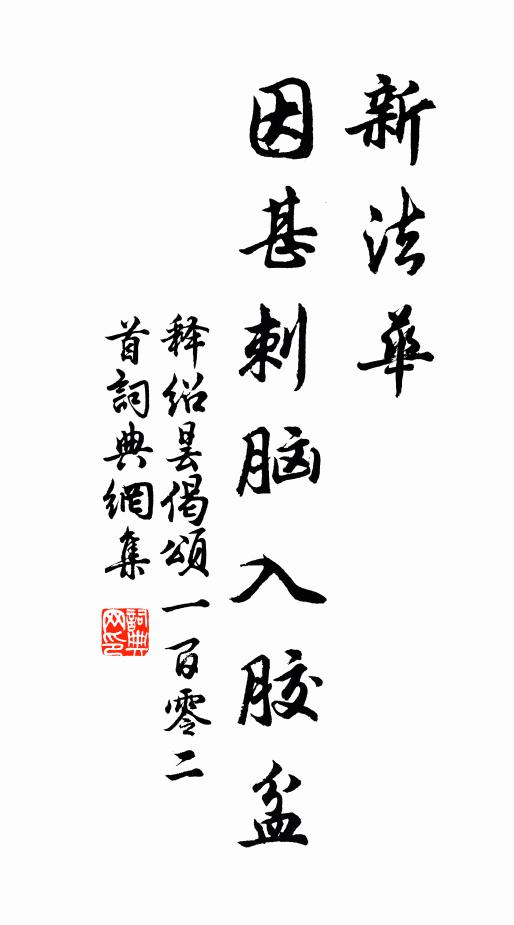 新法華
因甚刺脑入胶盆
释绍昙偈頌一百零二
首詞典網集
詞典網印